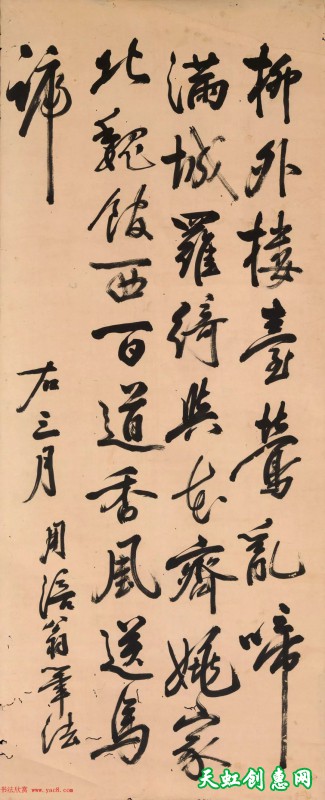 柳外楼臺鶯亂啼
满城羅綺與花齊姚家
北魏館西百道香風送馬
蹄
右三月
用涪翁筆法
书法欣赏 www.yac8.com
天虹创惠网